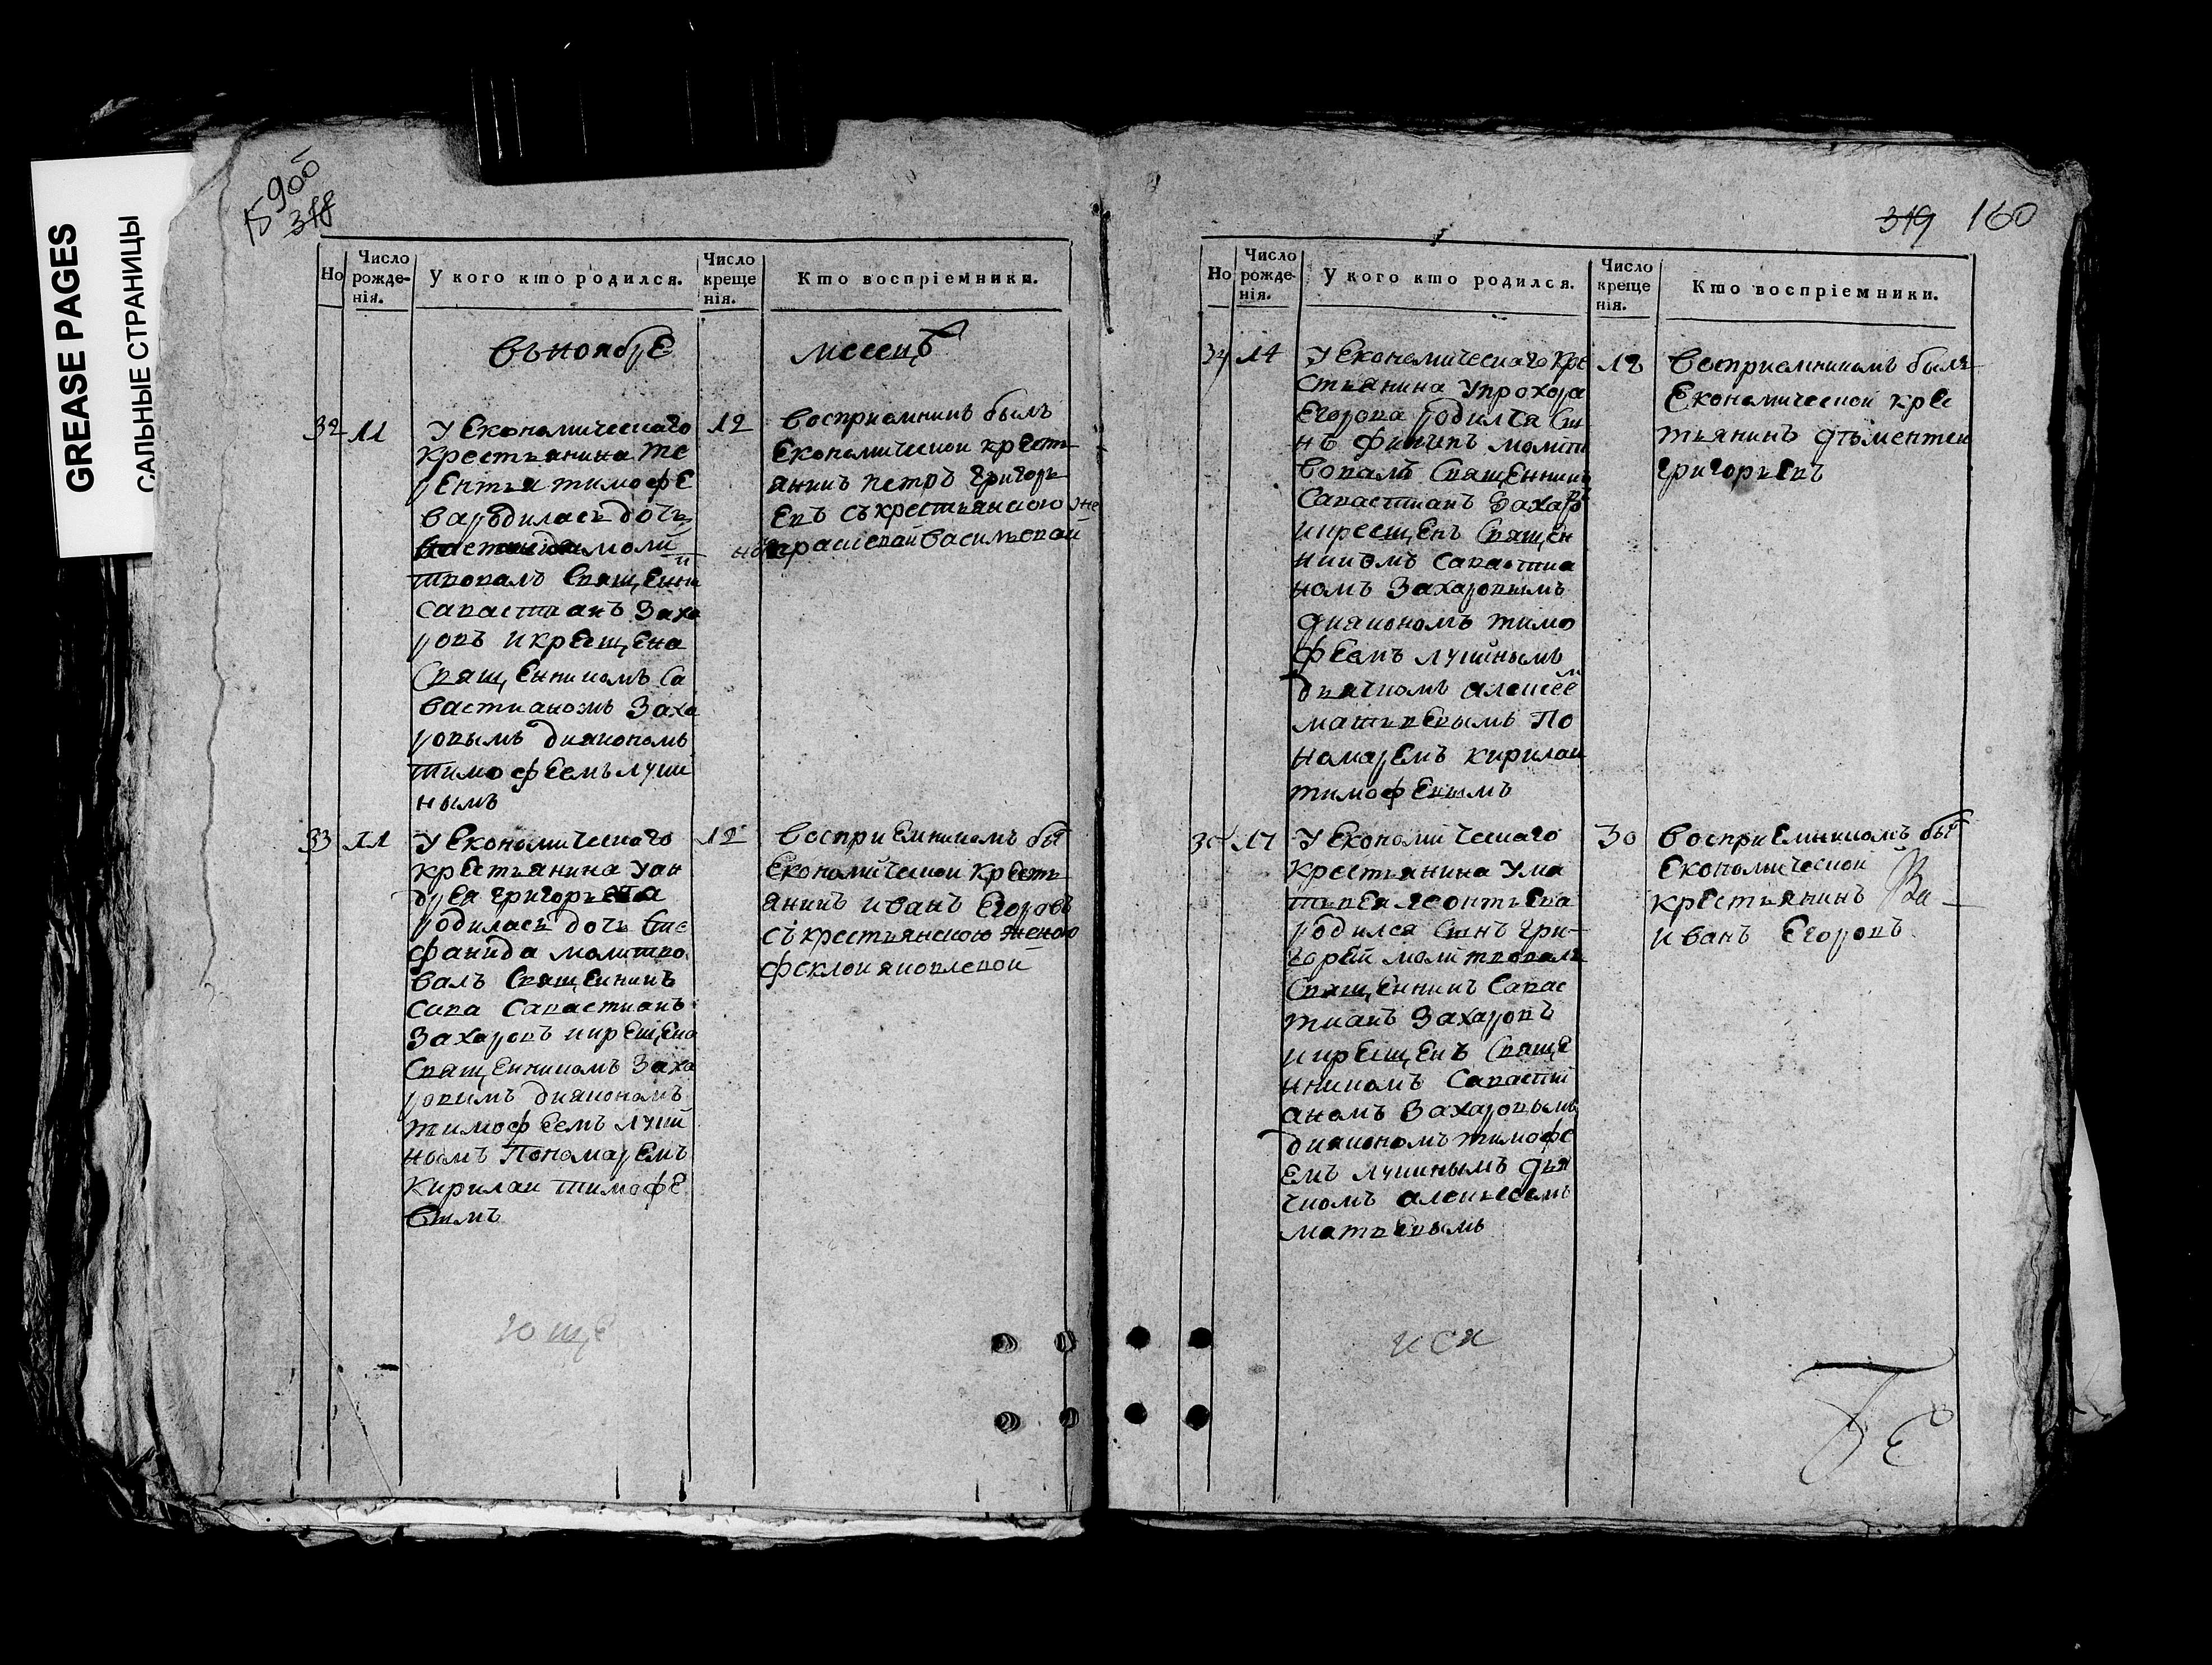 GREASE PAGES
САЛЬНЫЕ СТРАНИЦЫ
318
Но
Число рожде-нія.
У кого кто родился.
Число креще нія.
Кто воспріемники.
въ ноябрѢ
месецъ
32
11
У Економическаго
крестьянина те
рентья тимофѢ
ва родилась дочь
моли
твовалъ свящѢнни
савастианъ Заха
ровъ и крещена
свящѢнникомъ са
вастианомъ Заха
ровымъ диякономъ
тимофѢемъ луки
нымъ
12
восприемникъ былъ
Економическои крѢсть
янинъ петръ григорь
евъ съ крестьянскою же
ной васильевай
33
11
У Економическаго
крѢстьянина у ан
дрея григорьева
родилась дочь сте
фанида молитво
валъ свящѢнникъ
сава савастианъ
Захаровъ и крѢщена
свящѢнникомъ Заха
ровимъ дияконамъ
тимофѢемъ луки
ноамъ пономарѢмъ
кирилаи тимофѢ
вымъ
12
восприѢмникомъ бы
Економическои крѢсть
янинъ иванъ Егоровъ
съ крестьянскою женою
феклои яковлевой
юще
319 160
Но
Число рожде-нія.
У кого кто родился.
Число креще нія.
Кто воспріемники.
34
14
У Економическаго кре
стьянина у прохора
Егорова родился сы
нъ филипъ молит
вовалъ свящѢнникъ
савастианъ Захаров
и крещѢнъ свящѢн
никомъ савастиа
номъ Захаровымъ
диякономъ тимо
фѢемъ лукинымъ
дьячкомъ алексеем
матвѢвымъ по
номарѢмъ кирилаи
тимофѢвымъ
18
восприемникомъ былъ
Економическои крес
тьянинъ дѢментеи
григорьевъ
35
17
У Економическаго
крестьянина у ма
твея леонтьева
родился сынъ гри-
горей молитвовалъ
свящѢнникъ савас
тианъ Захаровъ
и крѢщѢнъ свящѢ
нникомъ савасти
аномъ Захаровымъ
дияконамъ тимофе
емъ лукинымъ дья
чкомъ алексеемъ
матвѢвымъ
30
восприѢмникомъ бы
Економическои
крѢстьянинъ
иванъ Егоровъ
ися